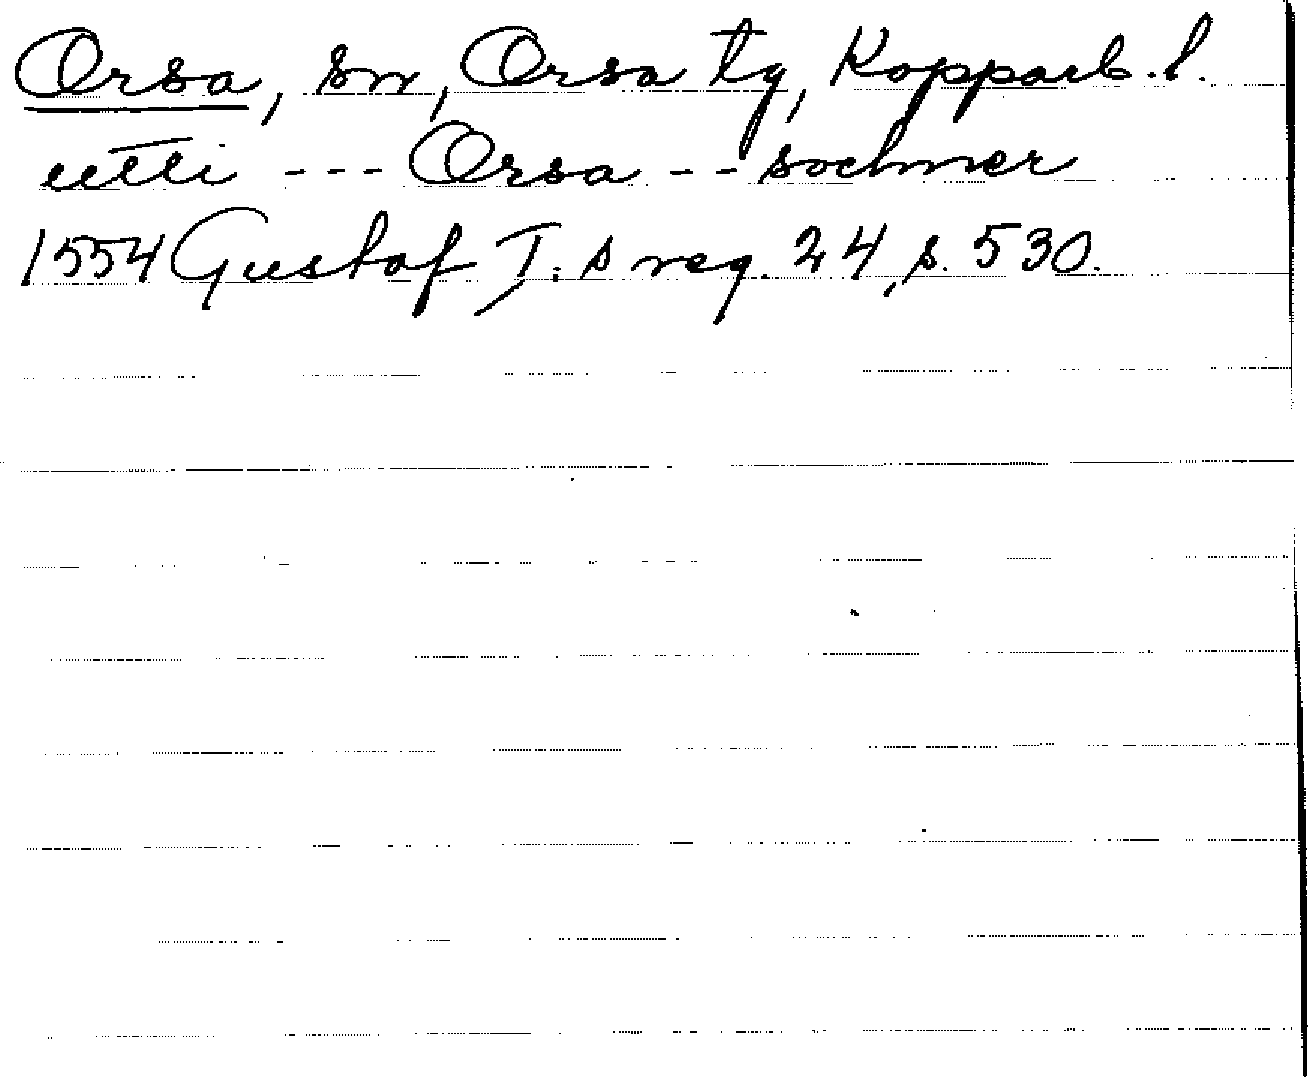 Orsa, sn, Orsa tg, Kopparb. l.
utti --- Orsa -- sochner
1554 Gustaf I:s reg. 24, s. 530.